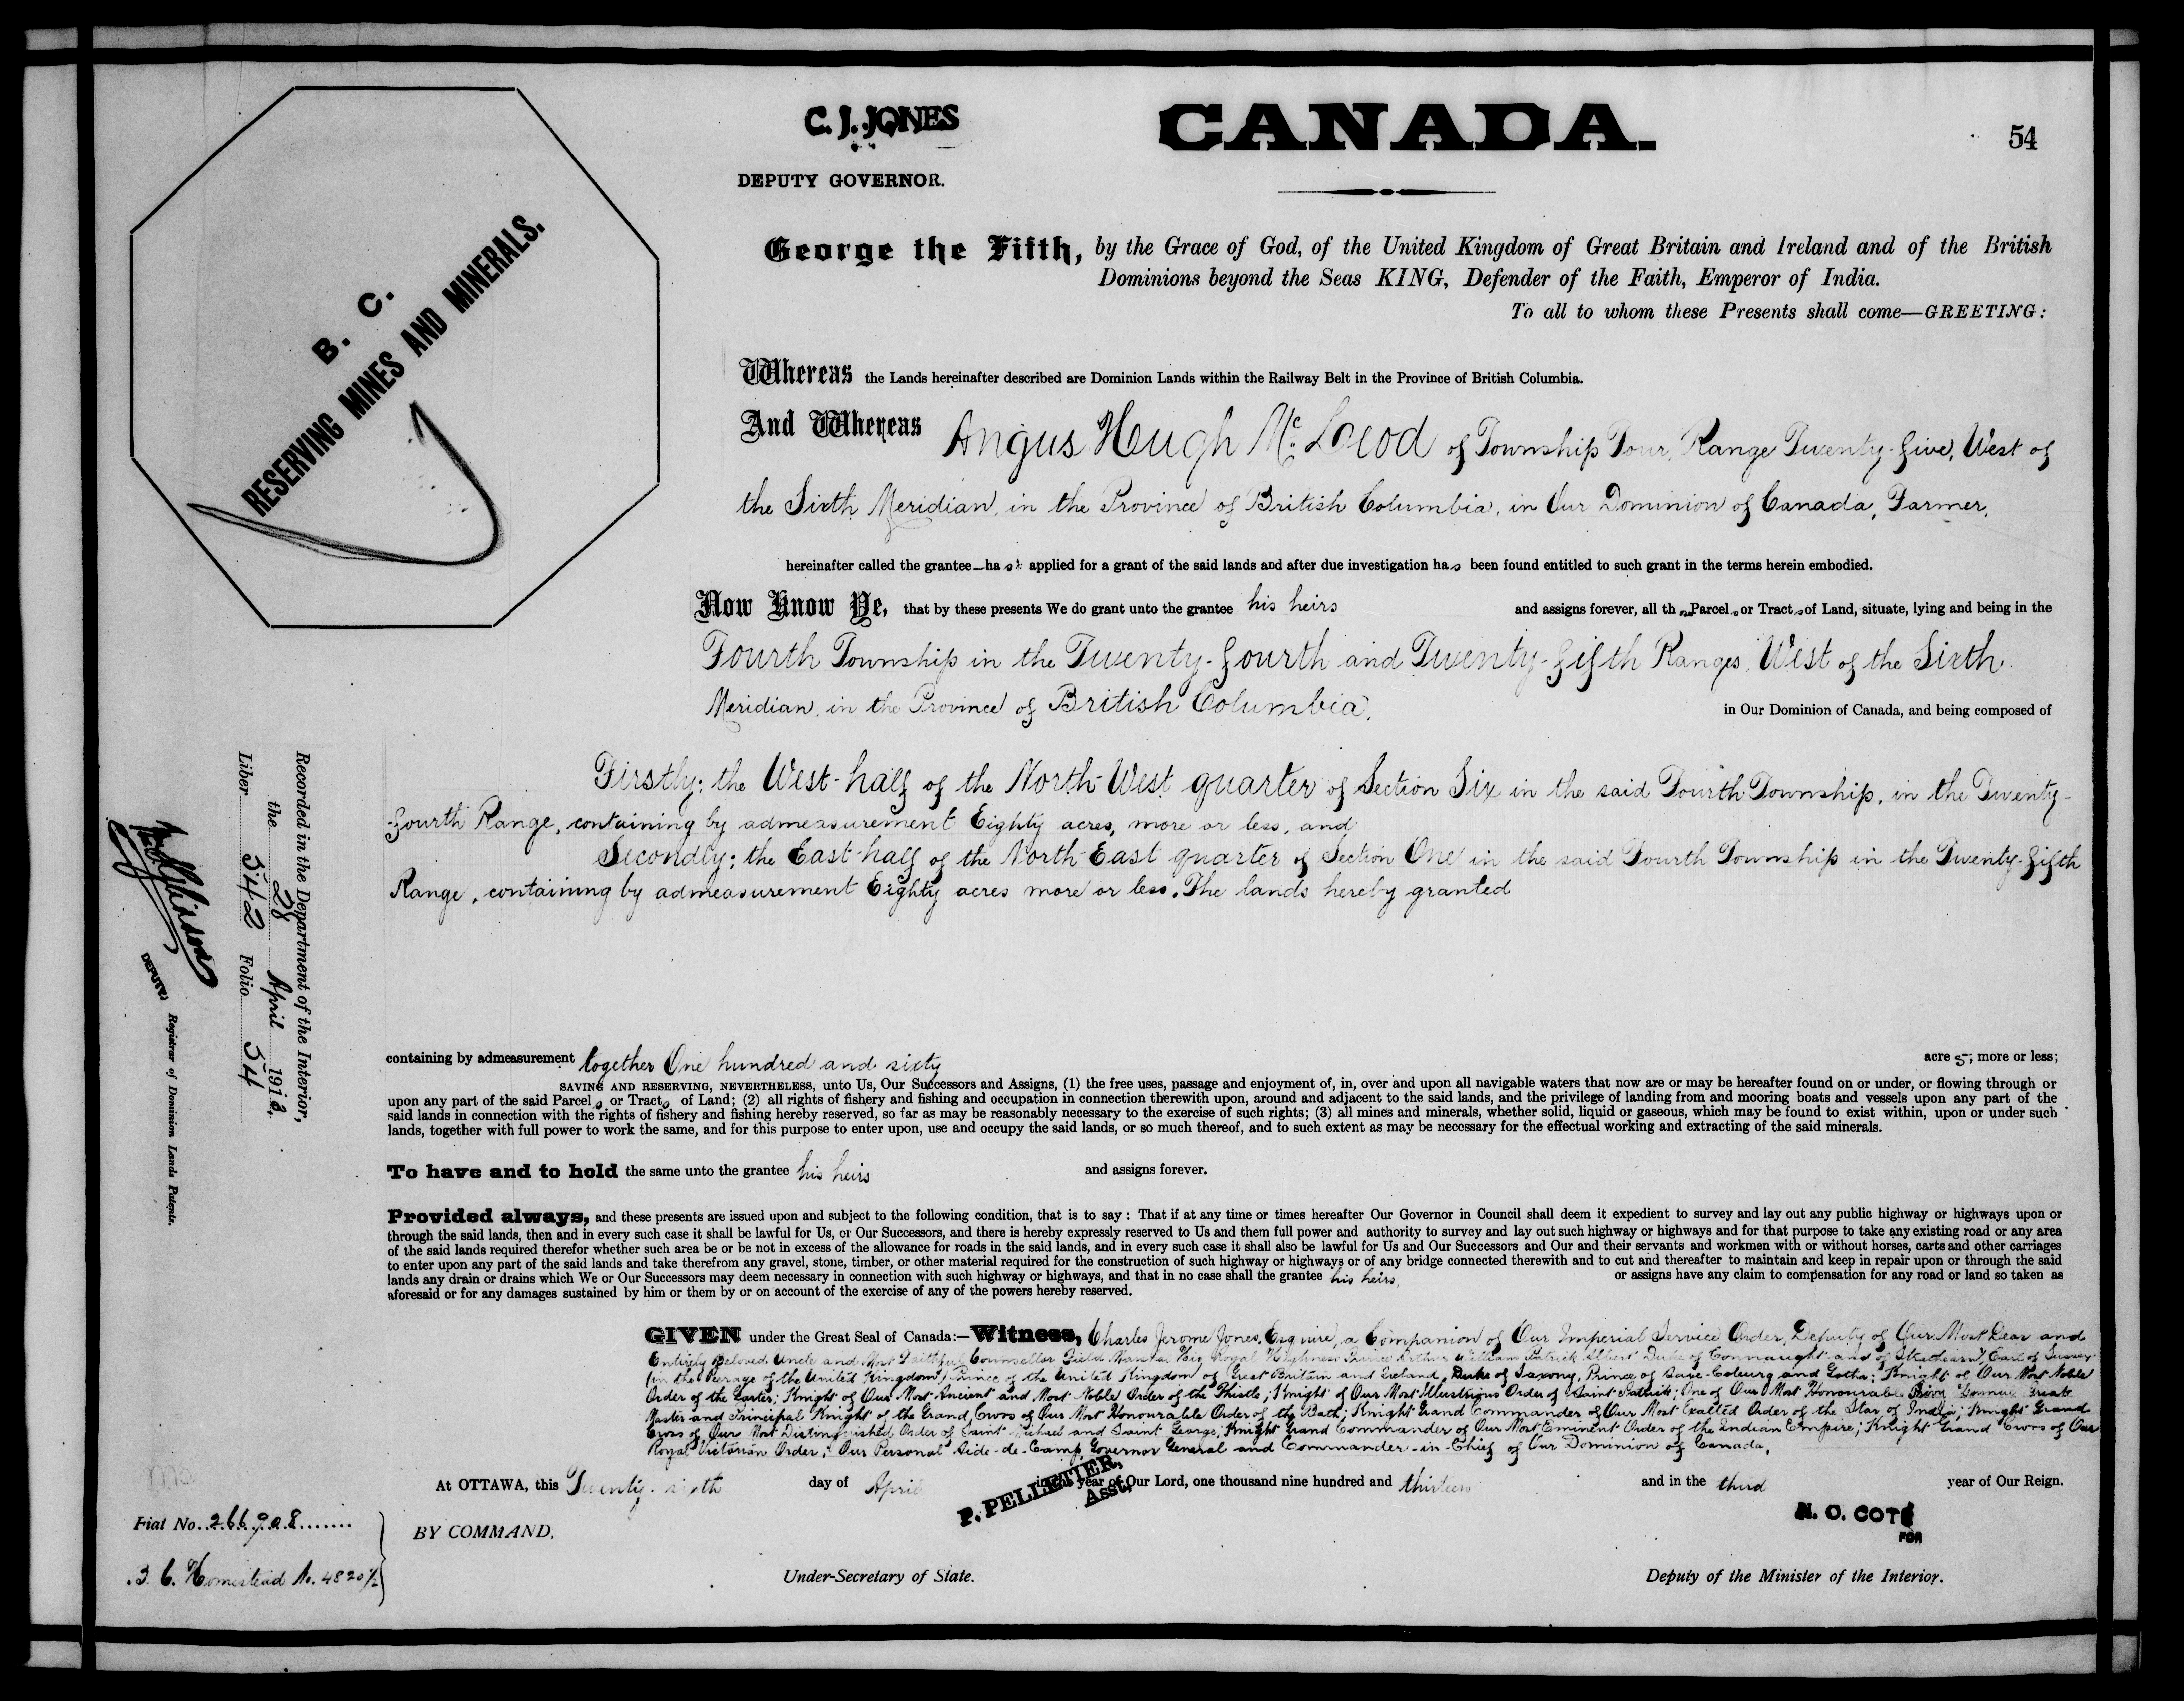 C. J. JONES
DEPUTY GOVERNOR.
CANADA.
54
B. C.
RESERVING MINES AND MINERALS.
George the Fifth, by the Grace of God, of the United Kingdom of Great Britain and Ireland and of the British
Dominions beyond the Seas KING, Defender of the Faith, Emperor of India.
To all to whom these Presents shall come—GREETING:
Whereas the Lands hereinafter described are Dominion Lands within the Railway Belt in the Province of British Columbia.
And Whereas Angus Hugh McLeod of Township Four, Range Twenty-five, West of
the Sixth Meridian, in the Province of British Columbia, in Our Dominion of Canada, Farmer,
hereinafter called the grantee—has applied for a grant of the said lands and after due investigation has been found entitled to such grant in the terms herein embodied.
Now Know Ye, that by these presents We do grant unto the grantee his heirs and assigns forever, all those Parcels or Tracts of Land, situate, lying and being in the
Fourth Township in the Twenty-fourth and Twenty-fifth Ranges, West of the Sixth
Meridian, in the Province of British Columbia, in Our Dominion of Canada, and being composed of
Firstly: the West-half of the North-West quarter of Section Six in the said Fourth Township, in the Twenty-
-fourth Range, containing by admeasurement Eighty acres, more or less, and
Secondly: the East-half of the North-East quarter of Section One in the said Fourth Township in the Twenty-fifth
Range, containing by admeasurement Eighty acres more or less. The lands hereby granted
containing by admeasurement together One hundred and sixty acres, more or less;
SAVING AND RESERVING, NEVERTHELESS, unto Us, Our Successors and Assigns, (1) the free uses, passage and enjoyment of, in, over and upon all navigable waters that now are or may be hereafter found on or under, or flowing through or
upon any part of the said Parcels or Tracts of Land; (2) all rights of fishery and fishing and occupation in connection therewith upon, around and adjacent to the said lands, and the privilege of landing from and mooring boats and vessels upon any part of the
said lands in connection with the rights of fishery and fishing hereby reserved, so far as may be reasonably necessary to the exercise of such rights; (3) all mines and minerals, whether solid, liquid or gaseous, which may be found to exist within, upon or under such
lands, together with full power to work the same, and for this purpose to enter upon, use and occupy the said lands, or so much thereof, and to such extent as may be necessary for the effectual working and extracting of the said minerals.
To have and to hold the same unto the grantee his heirs and assigns forever.
Provided always, and these presents are issued upon and subject to the following condition, that is to say: That if at any time or times hereafter Our Governor in Council shall deem it expedient to survey and lay out any public highway or highways upon or
through the said lands, then and in every such case it shall be lawful for Us, or Our Successors, and there is hereby expressly reserved to Us and them full power and authority to survey and lay out such highway or highways and for that purpose to take any existing road or any area
of the said lands required therefor whether such area be or be not in excess of the allowance for roads in the said lands, and in every such case it shall also be lawful for Us and Our Successors and Our and their servants and workmen with or without horses, carts and other carriages
to enter upon any part of the said lands and take therefrom any gravel, stone, timber, or other material required for the construction of such highway or highways or of any bridge connected therewith and to cut and thereafter to maintain and keep in repair upon or through the said
lands any drain or drains which We or Our Successors may deem necessary in connection with such highway or highways, and that in no case shall the grantee his heirs, or assigns have any claim to compensation for any road or land so taken as
aforesaid or for any damages sustained by him or them by or on account of the exercise of any of the powers hereby reserved.
GIVEN under the Great Seal of Canada:—Witness, Charles Jerome Jones, Esquire, a Companion of Our Imperial Service Order, Deputy of Our Most Dear and
Entirely Beloved Uncle and Most Faithful Counsellor Field Marshal His Royal Highness Prince Arthur William Patrick Albert Duke of Connaught and of Strathearn, Earl of Sussex
(in the Peerage of the United Kingdom) Prince of the United Kingdom of Great Britain and Ireland, Duke of Saxony, Prince of Saxe-Coburg and Gotha; Knight of Our Most Noble
Order of the Garter; Knight of Our Most Ancient and Most Noble Order of the Thistle; Knight of Our Most Illustrious Order of Saint Patrick; One of Our Most Honourable Privy Council Great
Master and Principal Knight of the Grand Cross of Our Most Honourable Order of the Bath; Knight Grand Commander of Our Most Exalted Order of the Star of India; Knight Grand
Cross of Our Most Distinguished Order of Saint Michael and Saint George; Knight Grand Commander of Our Most Eminent Order of the Indian Empire; Knight Grand Cross of Our
Royal Victorian Order; Our Personal Aide-de-Camp Governor General and Commander-in-Chief of Our Dominion of Canada.
At OTTAWA, this Twenty-sixth day of April in the year of Our Lord, one thousand nine hundred and thirteen and in the third year of Our Reign.
BY COMMAND,
P. PELLETIER,
Asst.
Under-Secretary of State.
N. O. COTÉ
FOR
Deputy of the Minister of the Interior.
Recorded in the Department of the Interior,
the 28 April 1913,
Liber 542 Folio 54
DEPUTY Registrar of Dominion Lands Patents.
Fiat No. 266908
B. C. Homestead No. 4820½